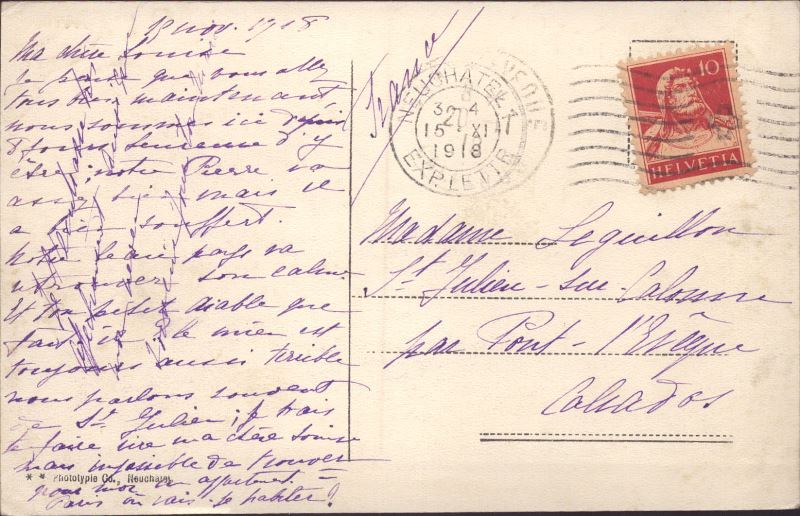 15 nov. 1918
Ma chère Louise
Je pense que vous allez
tous bien maintenant,
nous sommes ici depuis
8 jours heureux d'y
être; notre Pierre va
assez bien mais il
a bien souffert.
Notre beau pays va
retrouver son calme.
Et ton petit diable que
fait-il; le mien est
toujours aussi terrible
nous parlons souvent
de St Julien; je vais
te faire rire ma chère Louise
mais impossible de trouver
pour moi un appartement
Paris où vais-je habiter?
* * Phototypie Co., Neuchatel
France
NEUCHATEL 1
15 XI
1918
EXP. LETTR.
10
HELVETIA
Madame Leguillon
St Julien-sur-Calonne
par Pont-l'Evêque
Calvados